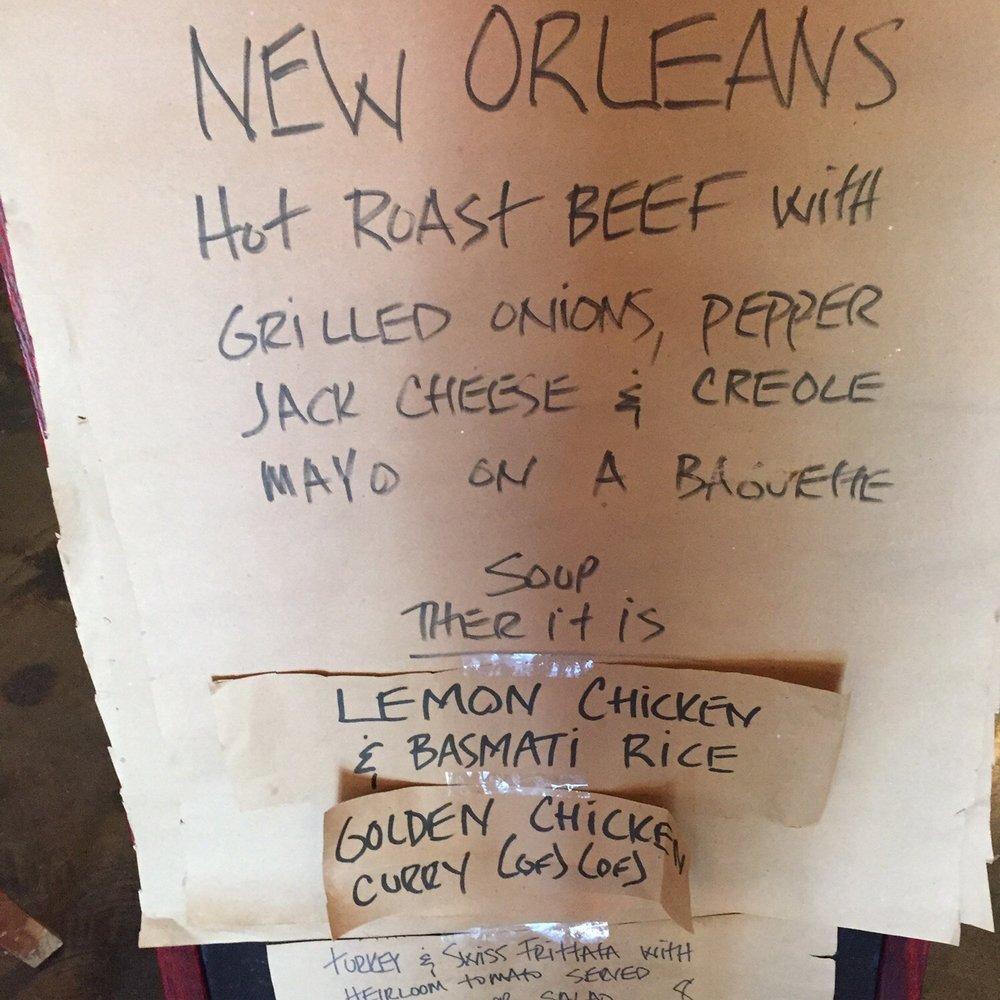 NEW ORLEANS
Hot ROASt BEEF with
GRiLLED ONiONS, PEPPER
JACK CHEESE & CREOLE
MAYO ON A BAGUETTE
SOUP
THER it is
LEMON CHiCKEN
& BASMATi RiCE
GOLDEN CHiCKEN
CURRY (GF) (DF)
TURKEY & SWiSS FRittATA WitH
HEiRLOOM TOMATO SERVED
OR SALAD 8